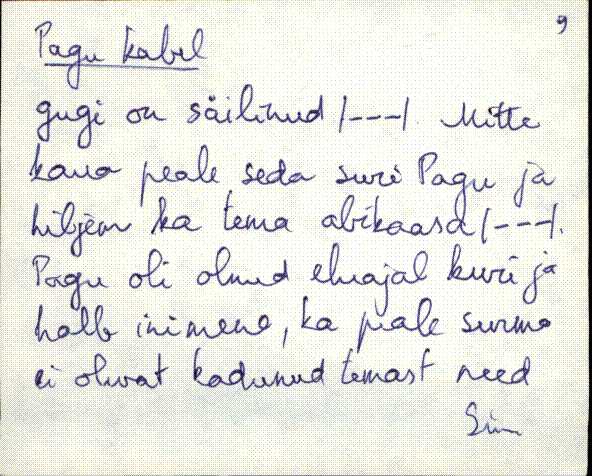 9
Pagu kabel
gugi on säilinud /---/. Mitte
kaua peale seda suri Pagu ja
hiljem ka tema abikaasa /---/.
Pagu oli olnud eluajal kuri ja
halb inimene, ka peale surma
ei olevat kadunud temast need